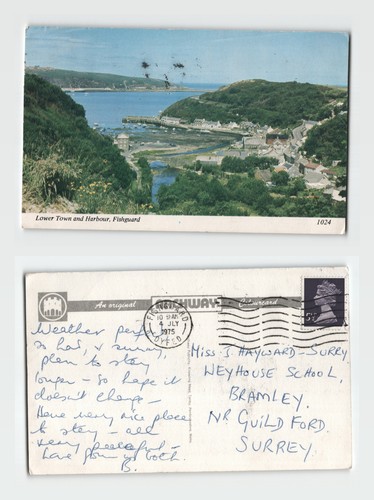 Lower Town and Harbour, Fishguard
1024
An original
HIGHWAY
Colourcard
FISHGUARD
10 30 AM
4 JLY
1975
DYFED
Weather perfect
so hot, & sunny,
plan to stay
longer - so hope it
doesn't change -
Have very nice place
to stay - all
very peaceful -
Love from us both.
B.
Miss J. HAYWARD-SURRY,
WEYHOUSE SCHOOL,
BRAMLEY.
NR GUILDFORD.
SURREY.